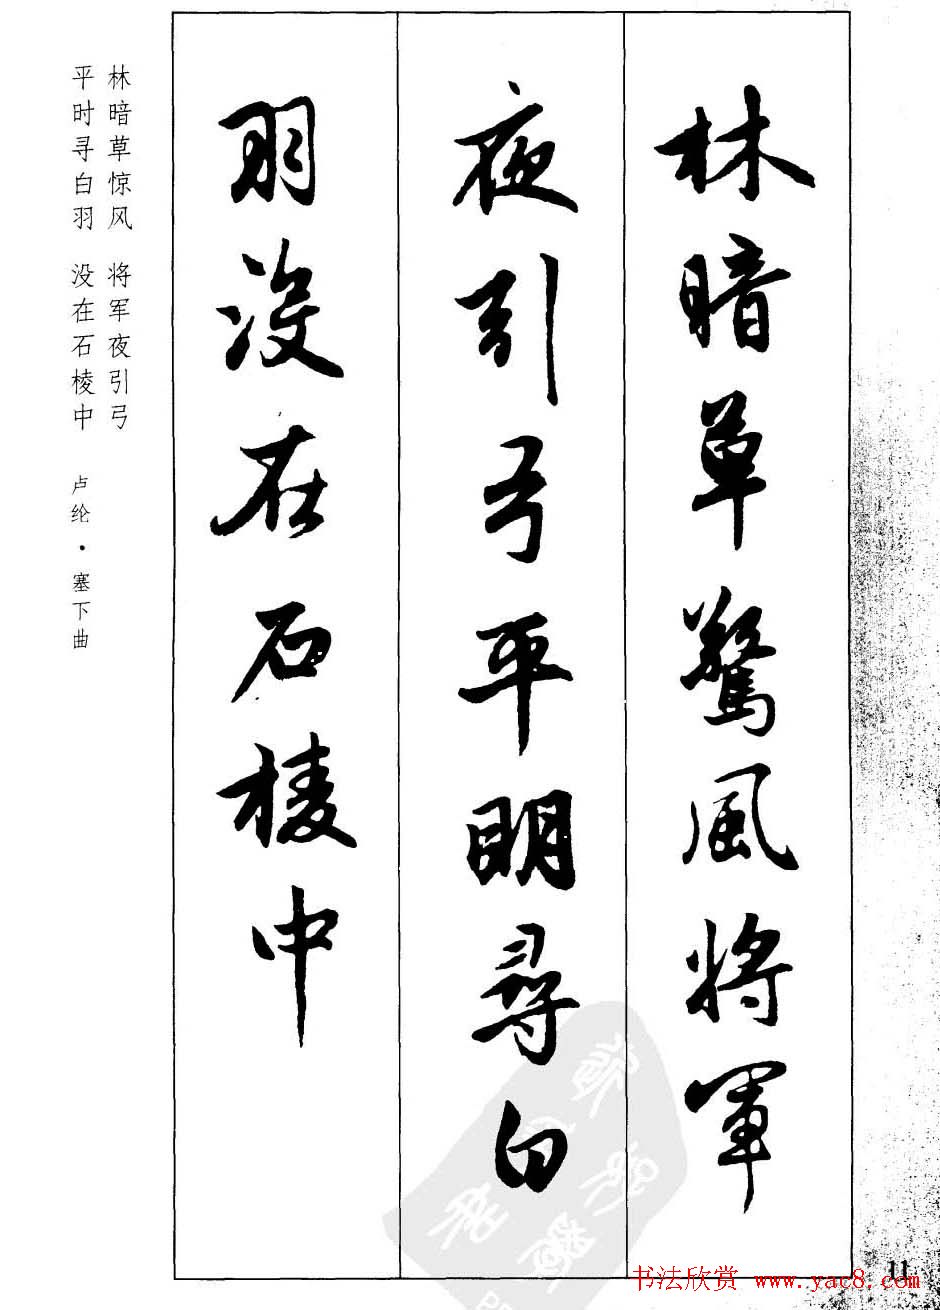 林暗草驚風將軍
夜引弓平明尋白
羽沒在石棱中
林暗草惊风 将军夜引弓
平时寻白羽 没在石棱中 卢纶·塞下曲
11
书法欣赏 www.yac8.com